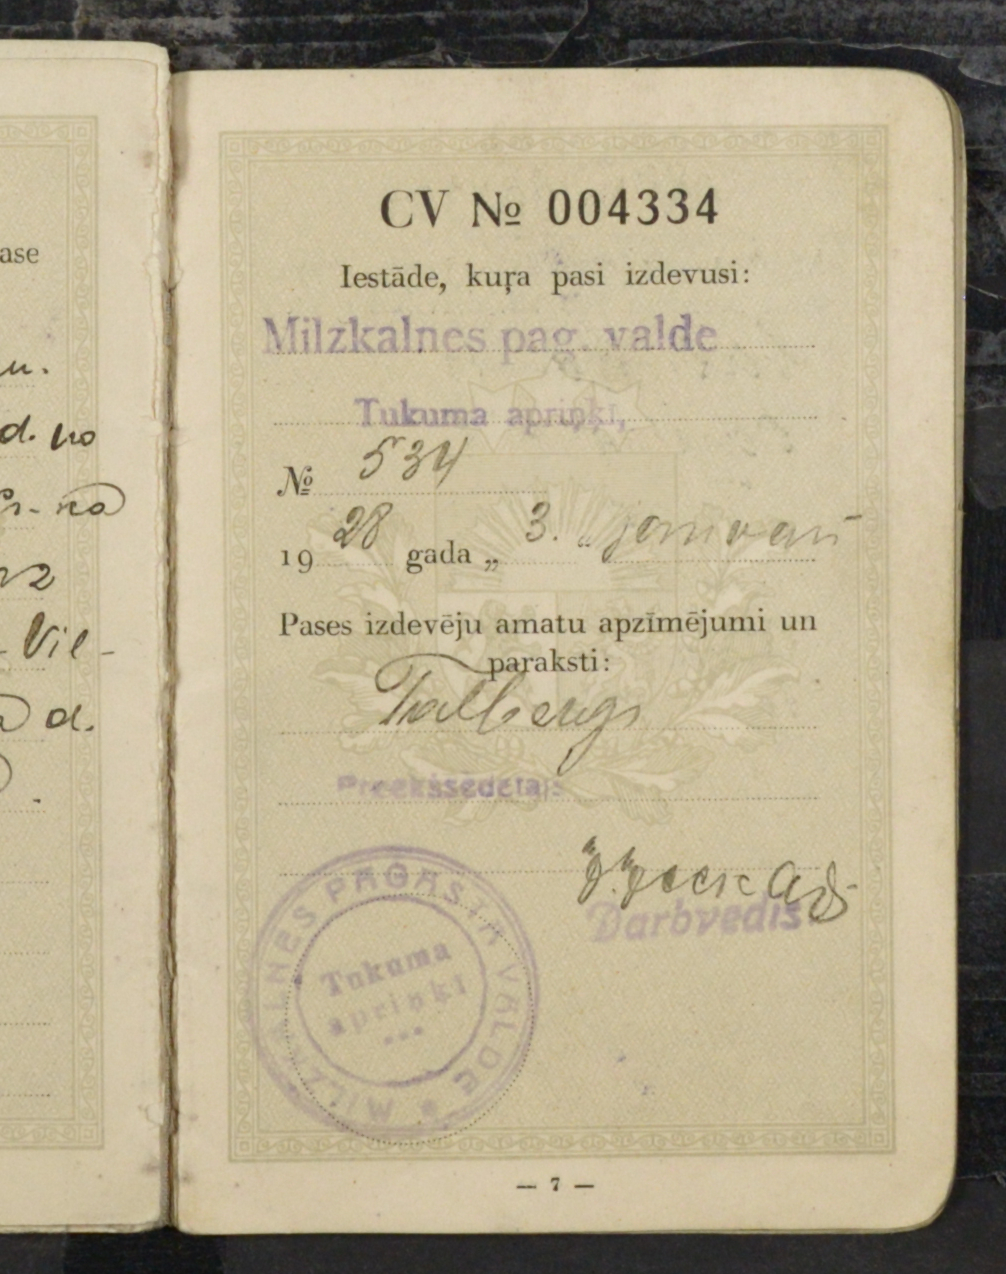 ase
u.
d. no
Vil-
d.
CV № 004334
Iestāde, kuŗa pasi izdevusi:
Milzkalnes pag. valde
Tukuma apriņķī,
№ 534
1928 gada „ 3. “ janvarī
Pases izdevēju amatu apzīmējumi un
paraksti:
Preekšsēdētajs
Darbvedis
MILZKALNES PAGASTA VALDE
Tukuma
apriņķī
— 7 —